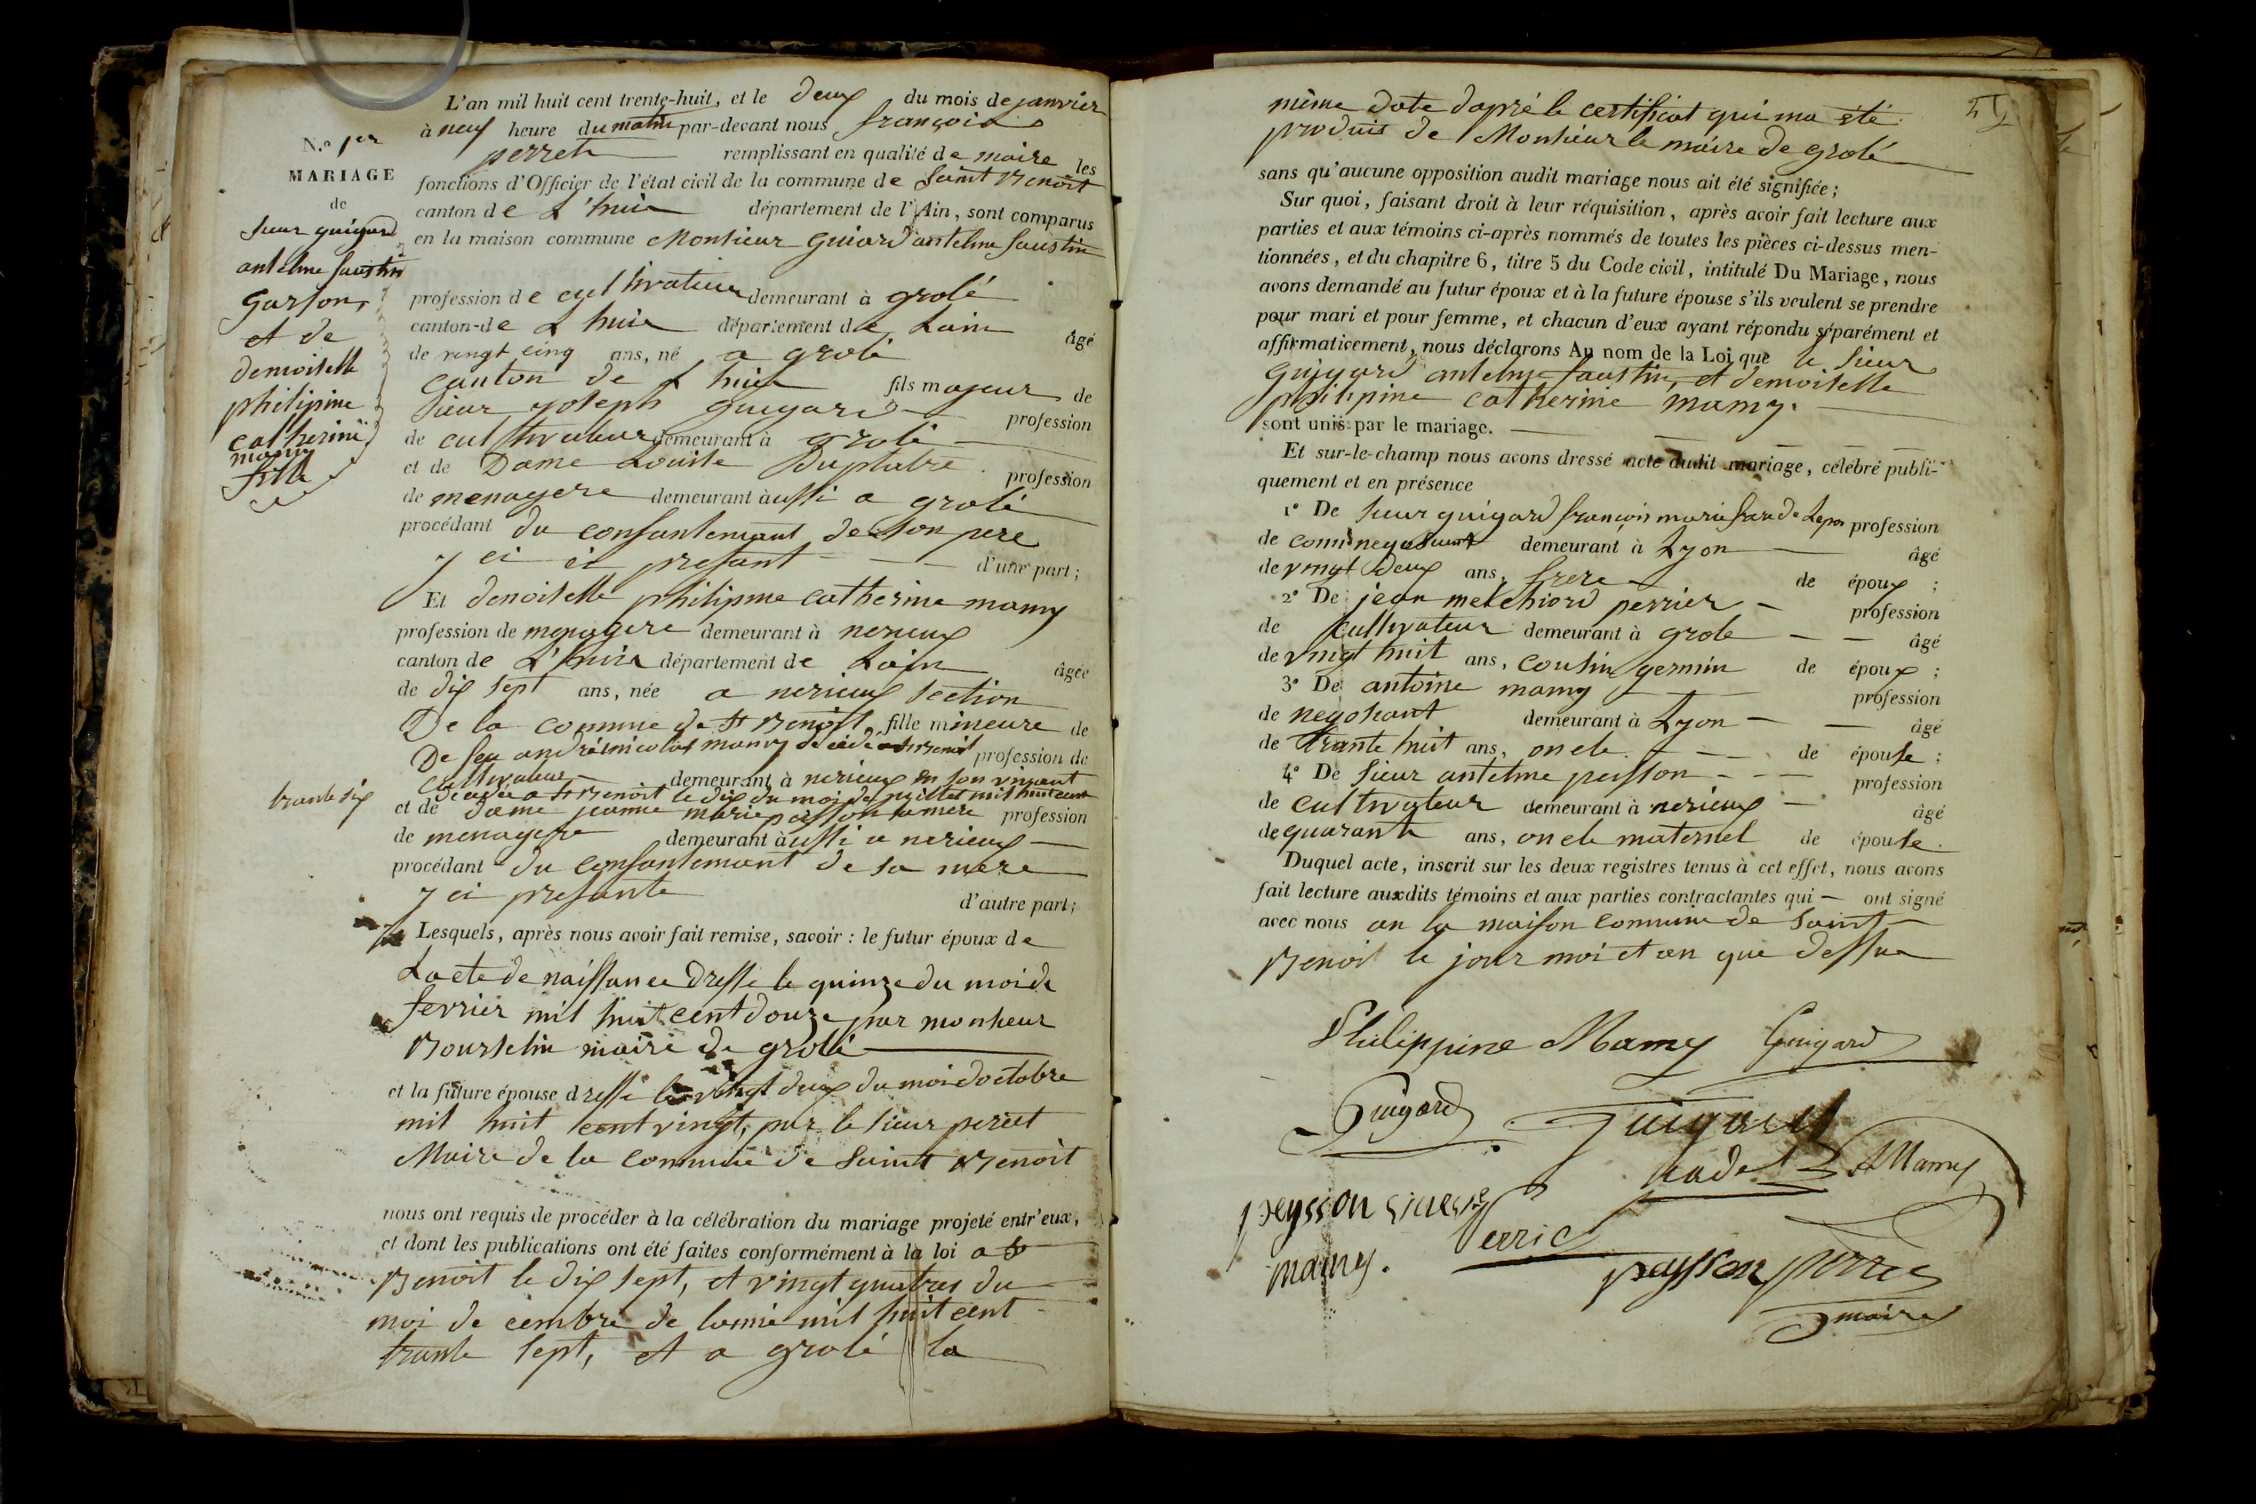 N.º 1er
MARIAGE
de
sieur guigard
antelme faustin
garson,
et de
demoiselle
philipine
catherine
mamy
fille
L'an mil huit cent trente-huit, et le deux du mois de janvier
à neuf heure du matin par-devant nous françois
perret remplissant en qualité de maire les
fonctions d'Officier de l'état civil de la commune de Saint Benoît
canton de L'huis département de l'Ain, sont comparus
en la maison commune Monsieur guiard antelme faustin
profession de cultivateur demeurant à grolé
canton de L huis département de Lain âgé
de vingt cinq ans, né a grolé
canton de L huis fils majeur de
sieur joseph guigard profession
de cultivateur demeurant à grolé
et de Dame Louise Duplatre profession
de menagere demeurant àussi a grolé
procédant du consantemant de son pere
y ci presant d'une part;
Et demoiselle philipine catherine mamy
profession de menagere demeurant à nerieux
canton de L'huis département de Lain âgée
de dix sept ans, née a nerieux section
De la commune de St Benoît fille mineure de
De feu andré nicolas mamy décédé a st Benoit profession de
cultivateur demeurant à nerieux en son vivant
décédé a St Benoit le dix du mois de juillet mil huit cent
trante six
et de dame jeanne marie peisson sa mère profession
de menagere demeurant àussi a nerieux
procédant du consantemant de sa mere
y ci presante d'autre part;
Lesquels, après nous avoir fait remise, savoir : le futur époux de
Lacte de naissance dressé le quinze du moi de
fevrier mil huit cent douze par monsieur
Bourselin maire de grolé
et la future épouse dressé le vingt deux du moi doctobre
mil huit cent vingt, par le sieur perret
Maire de la commune de Saint Benoît
nous ont requis de procéder à la célébration du mariage projeté entr'eux,
et dont les publications ont été faites conformément à la loi a St
Benoit le dix sept, et vingt quatre du
moi de cembre de lanné mil huit cent
trante sept, et a grolé la
même date dapré le certificat qui ma été
produis de Monsieur le maire de grolé
sans qu'aucune opposition audit mariage nous ait été signifiée;
Sur quoi, faisant droit à leur réquisition, après avoir fait lecture aux
parties et aux témoins ci-après nommés de toutes les pièces ci-dessus men-
tionnées, et du chapitre 6, titre 5 du Code civil, intitulé Du Mariage, nous
avons demandé au futur époux et à la future épouse s'ils veulent se prendre
pour mari et pour femme, et chacun d'eux ayant répondu séparément et
affirmativement, nous déclarons Au nom de la Loi que le sieur
guigard antelme faustin, et demoiselle
philipine catherine mamy.
sont unis par le mariage.
Et sur-le-champ nous avons dressé acte dudit mariage, célébré publi-
quement et en présence
1º De sieur guigard françois marie profession
de comis negosiant demeurant à Lyon âgé
de vingt deux ans, frere de époux;
2º De jean melchiord perrier profession
de cultivateur demeurant à grole âgé
de vingt huit ans, cousin germin de époux;
3º De antoine mamy profession
de negosiant demeurant à Lyon âgé
de trante huit ans, oncle de épouse;
4º De sieur antelme peisson profession
de cultivateur demeurant à nerieux âgé
de quarante ans, oncle maternel de épouse.
Duquel acte, inscrit sur les deux registres tenus à cet effet, nous avons
fait lecture auxdits témoins et aux parties contractantes qui ont signé
avec nous an la maison commune de Saint
Benoit le jour moi et an que dessus
Philippine Mamy Guigard
Guigard Guigard
cadet A Mamy
peysson
mamy. Perrier
peysson perret
maire